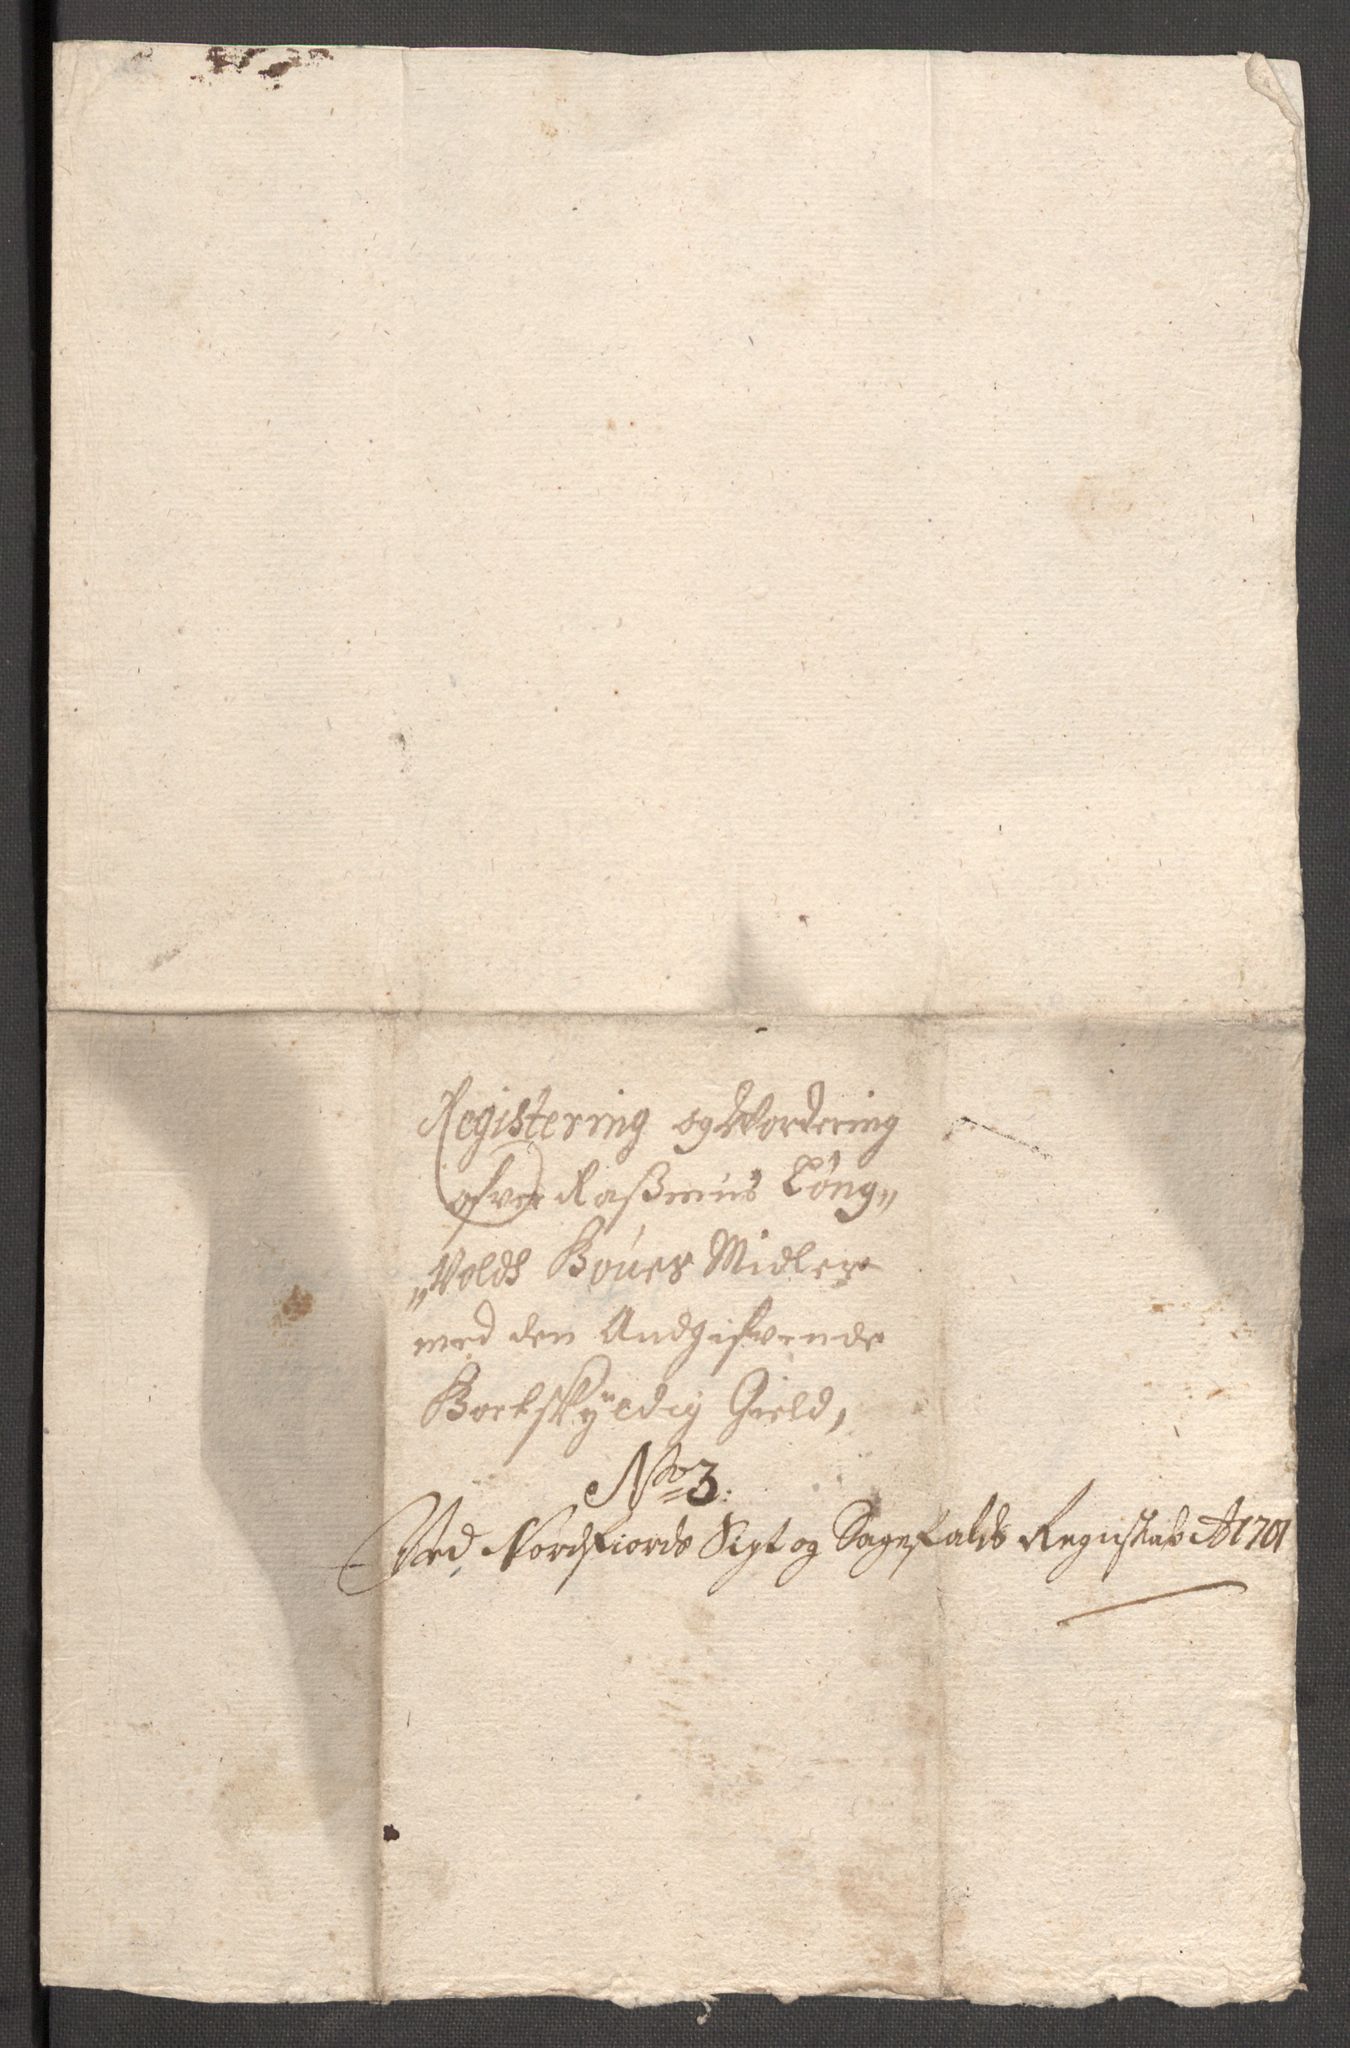 Registering og Wordering
ofver Raßmus Løng„
„Volds Boues Midler
med den Andgifvende
Bortskÿldig Gield,
No 3:
Ved Nordfiords Sigt og Sagefalds Regnskab Ao 1701